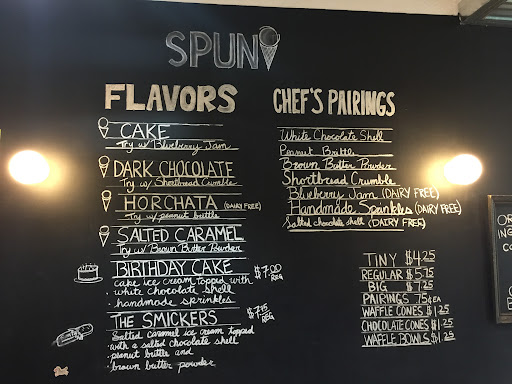 SPUN
FLAVORS
CAKE
Try w/ Blueberry Jam
DARK CHOCOLATE
Try w/ Shortbread Crumble
HORCHATA (DAIRY FREE)
Try w/ peanut brittle
SALTED CARAMEL
Try w/ Brown Butter Powder
BIRTHDAY CAKE
cake ice cream topped with $7.00 REG
• white chocolate shell
• handmade sprinkles
THE SMICKERS $7.75 REG
Salted caramel ice cream topped
• with a salted chocolate shell
• peanut brittle and
• brown butter powder
CHEF'S PAIRINGS
White Chocolate Shell
Peanut Brittle
Brown Butter Powder
Shortbread Crumble
Blueberry Jam (DAIRY FREE)
Handmade Sprinkles (DAIRY FREE)
Salted chocolate shell (DAIRY FREE)
TINY $4.25
REGULAR $5.75
BIG $7.25
PAIRINGS 75¢EA
WAFFLE CONES $1.25
CHOCOLATE CONES $1.25
WAFFLE BOWLS $1.25